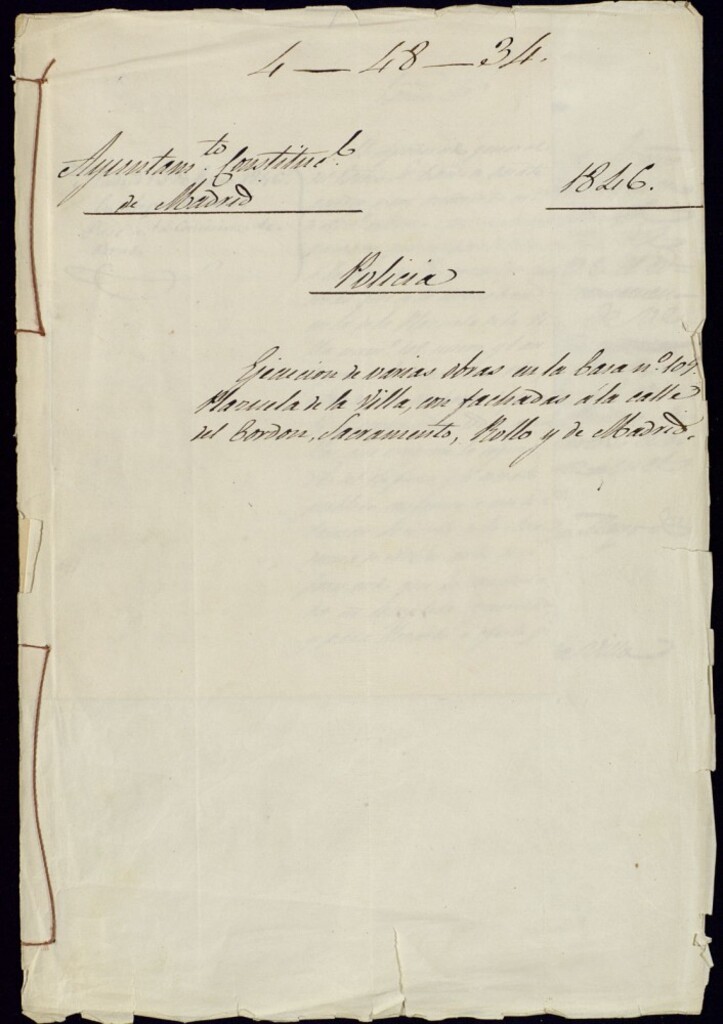 4 — 48 — 34.
Ayuntam.to Constituc.l
de Madrid
1846.
Policia
Ejecucion de varias obras en la Casa nº
Plazuela de la Villa, con fachadas á la calle
del Cordon, Sacramento, Rollo y de Madrid.